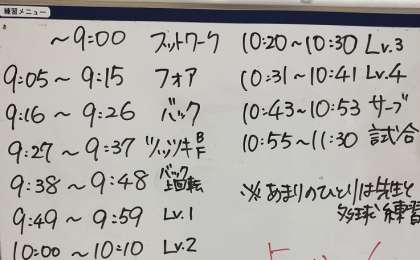 練習メニュー
～9:00 フットワーク
9:05～9:15 フォア
9:16～9:26 バック
9:27～9:37 ツッツキ B F
9:38～9:48 バック 上回転
9:49～9:59 Lv.1
10:00～10:10 Lv.2
10:20～10:30 Lv.3
10:31～10:41 Lv.4
10:43～10:53 サーブ
10:55～11:30 試合
※あまりのひとりは先生と
多球練習